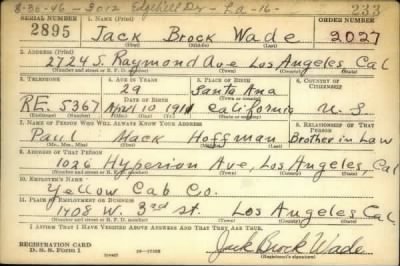 8-30-46 - 3012 Edgehill Dr - La -16- 233
SERIAL NUMBER 1. NAME (Print) ORDER NUMBER
2895 Jack Brock Wade 2027
(First) (Middle) (Last)
2. ADDRESS (Print)
2724 S. Raymond Ave Los Angeles, Cal
(Number and street or R. F. D. number) (Town) (County) (State)
3. TELEPHONE 4. AGE IN YEARS 5. PLACE OF BIRTH 6. COUNTRY OF CITIZENSHIP
29 Santa Ana
(Town or county)
DATE OF BIRTH
RE. 5367 April 10 1911 California U. S
(Exchange) (No.) (Mo.) (Day) (Yr.) (State or country)
7. NAME OF PERSON WHO WILL ALWAYS KNOW YOUR ADDRESS 8. RELATIONSHIP OF THAT PERSON
Paul Mack Hoffman Brother in Law
(Mr., Mrs., Miss) (First) (Middle) (Last)
9. ADDRESS OF THAT PERSON
1026 Hyperion Ave, Los Angeles, Cal
(Number and street or R. F. D. number) (Town) (County) (State)
10. EMPLOYER'S NAME
Yellow Cab Co.
11. PLACE OF EMPLOYMENT OR BUSINESS
1408 W. 3rd st. Los Angeles Cal
(Number and street or R. F. D. number) (Town) (County) (State)
I AFFIRM THAT I HAVE VERIFIED ABOVE ANSWERS AND THAT THEY ARE TRUE.
REGISTRATION CARD
D. S. S. Form 1
Jack Brock Wade
(Registrant's signature)